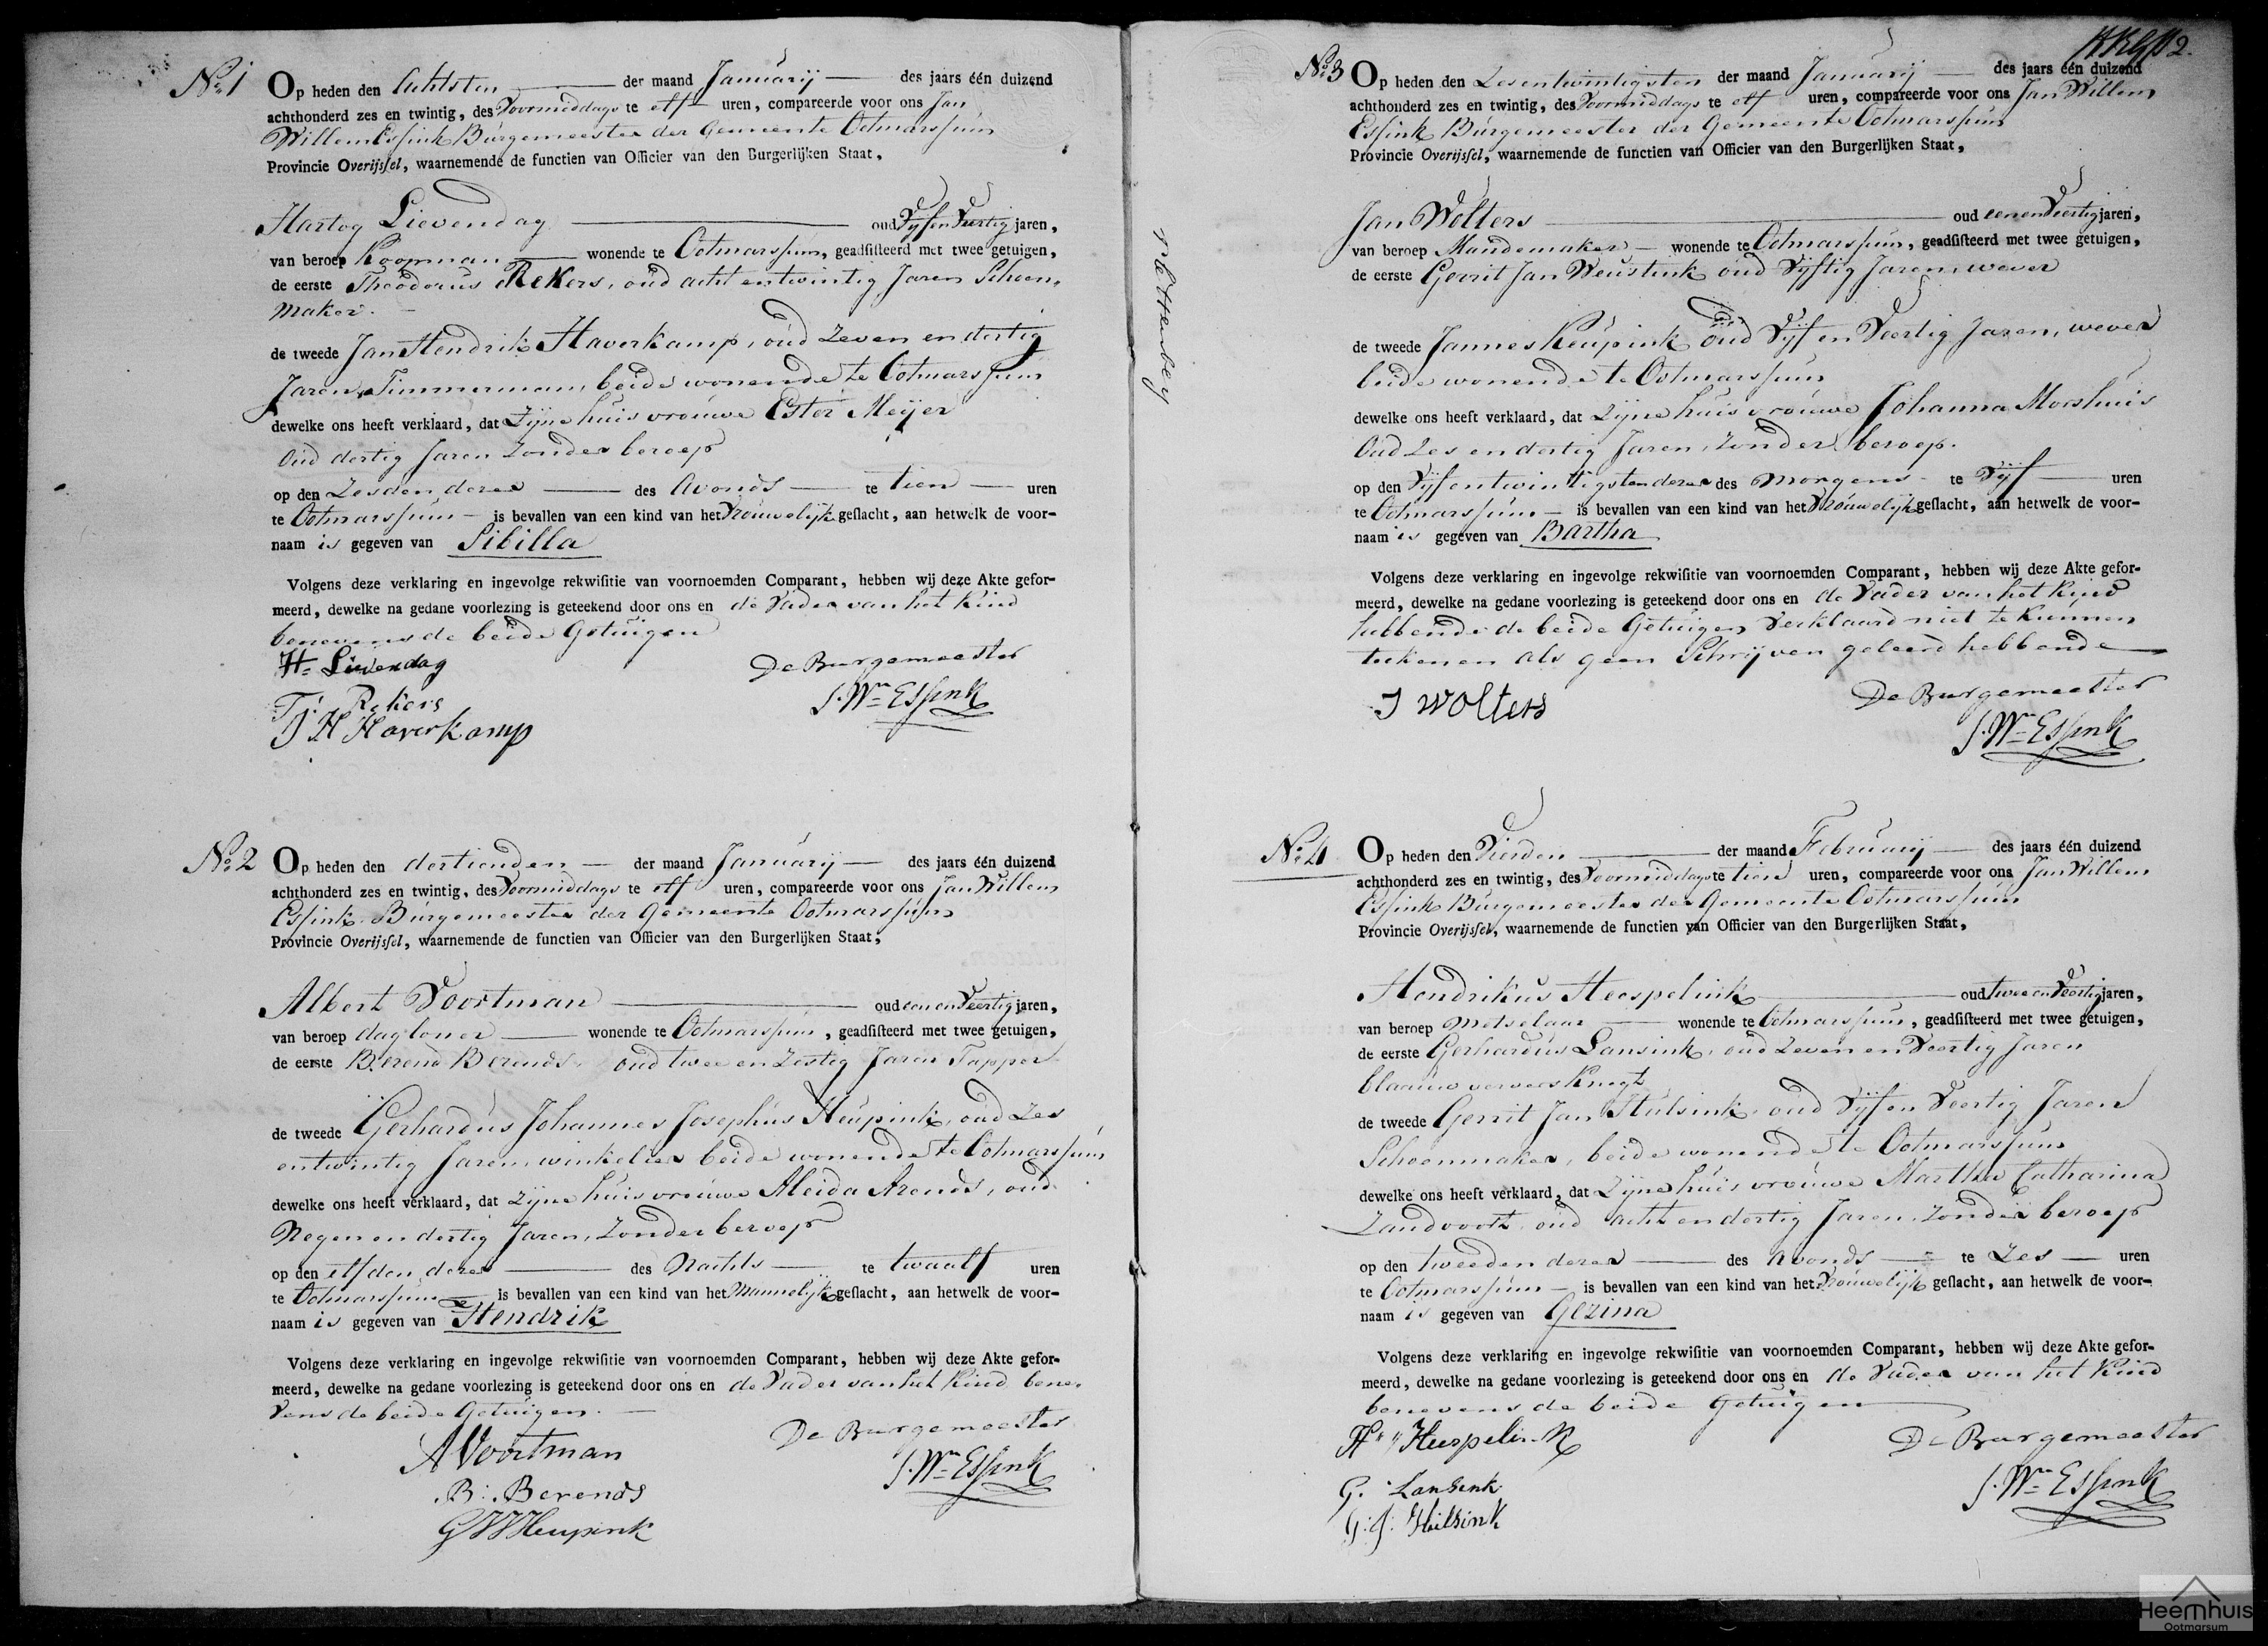 No. 1 Op heden den Achtsten der maand Januarij des jaars één duizend
achthonderd zes en twintig, des Voormiddags te elf uren, compareerde voor ons Jan
Willem Essink Burgemeester der Gemeente Ootmarssum
Provincie Overijssel, waarnemende de functien van Officier van den Burgerlijken Staat,
Hartog Lievendag oud Vijf en Veertig jaren,
van beroep Koopman wonende te Ootmarssum, geadsisteerd met twee getuigen,
de eerste Theodorus Rekers, oud acht en twintig Jaren Schoen-
maker.
de tweede Jan Hendrik Haverkamp, oud Zeven en dertig
Jaren, Timmerman, beide wonende te Ootmarssum
dewelke ons heeft verklaard, dat Zijne huisvrouwe Ester Meijer
Oud dertig Jaren Zonder beroep
op den Zesden dezer des Avonds te tien uren
te Ootmarssum is bevallen van een kind van het Vrouwelijk geslacht, aan hetwelk de voor-
naam is gegeven van Sibilla
Volgens deze verklaring en ingevolge rekwisitie van voornoemden Comparant, hebben wij deze Akte gefor-
meerd, dewelke na gedane voorlezing is geteekend door ons en de Vader van het Kind
benevens de beide Getuigen
H. Lievendag De Burgemeester
T: Rekers J. Wm Essink
J H Haverkamp
No. 2 Op heden den dertienden der maand Januarij des jaars één duizend
achthonderd zes en twintig, des Voormiddags te elf uren, compareerde voor ons Jan Willem
Essink Burgemeester der Gemeente Ootmarssum
Provincie Overijssel, waarnemende de functien van Officier van den Burgerlijken Staat,
Albert Voortman oud een en Veertig jaren,
van beroep dagloner wonende te Ootmarssum, geadsisteerd met twee getuigen,
de eerste Berend Berends, oud twee en Zestig Jaren Tapper
de tweede Gerhardus Johannes Josephus Heupink, oud Zes
en twintig Jaren, winkelier beide wonende te Ootmarssum
dewelke ons heeft verklaard, dat Zijne huisvrouwe Aleida Arends, oud
Negen en dertig Jaren, Zonder beroep
op den elfden dezer des Nachts te twaalf uren
te Ootmarssum is bevallen van een kind van het Mannelijk geslacht, aan hetwelk de voor-
naam is gegeven van Hendrik
Volgens deze verklaring en ingevolge rekwisitie van voornoemden Comparant, hebben wij deze Akte gefor-
meerd, dewelke na gedane voorlezing is geteekend door ons en de Vader van het Kind bene-
vens de beide Getuigen.
A Voortman De Burgemeester
B: Berends J. Wm Essink
G J J Heupink
Plettenberg
2.
No. 3 Op heden den Zesentwintigsten der maand Januarij des jaars één duizend
achthonderd zes en twintig, des Voormiddags te elf uren, compareerde voor ons Jan Willem
Essink Burgemeester der Gemeente Ootmarssum
Provincie Overijssel, waarnemende de functien van Officier van den Burgerlijken Staat,
Jan Wolters oud een en Veertig jaren,
van beroep Mandemaker wonende te Ootmarssum, geadsisteerd met twee getuigen,
de eerste Gerrit Jan Weustink oud Vijftig Jaren, wever
de tweede Jannes Keupink oud Vijf en Veertig Jaren, wever
beide wonende te Ootmarssum
dewelke ons heeft verklaard, dat Zijne huisvrouwe Johanna Morshuis
Oud Zes en dertig Jaren, Zonder beroep.
op den Vijf en twintigsten dezer des morgens te Vijf uren
te Ootmarssum is bevallen van een kind van het Vrouwelijk geslacht, aan hetwelk de voor-
naam is gegeven van Bartha
Volgens deze verklaring en ingevolge rekwisitie van voornoemden Comparant, hebben wij deze Akte gefor-
meerd, dewelke na gedane voorlezing is geteekend door ons en de Vader van het Kind
hebbende de beide Getuigen Verklaard niet te kunnen
teekenen als geen Schrijven geleerd hebbende
J Wolters De Burgemeester
J. Wm Essink
No. 4 Op heden den Vierden der maand Februarij des jaars één duizend
achthonderd zes en twintig, des Voormiddags te tien uren, compareerde voor ons Jan Willem
Essink Burgemeester der Gemeente Ootmarssum
Provincie Overijssel, waarnemende de functien van Officier van den Burgerlijken Staat,
Hendrikus Heespelink oud twee en Veertig jaren,
van beroep Metselaar wonende te Ootmarssum, geadsisteerd met twee getuigen,
de eerste Gerhardus Lansink, oud Zeven en Veertig Jaren
blaauwververs Knegt
de tweede Gerrit Jan Hulsink, oud Vijf en Veertig Jaren
Schoenmaker, beide wonende te Ootmarssum
dewelke ons heeft verklaard, dat Zijne huisvrouwe Martha Catharina
Zandvoort, oud acht en dertig Jaren, Zonder beroep
op den tweeden dezer des Avonds te Zes uren
te Ootmarssum is bevallen van een kind van het Vrouwelijk geslacht, aan hetwelk de voor-
naam is gegeven van Gezina
Volgens deze verklaring en ingevolge rekwisitie van voornoemden Comparant, hebben wij deze Akte gefor-
meerd, dewelke na gedane voorlezing is geteekend door ons en de Vader van het Kind
benevens de beide Getuigen
H Heespelink De Burgemeester
G. Lansink J. Wm Essink
G: J: Hulsink
Heemhuis
Ootmarsum